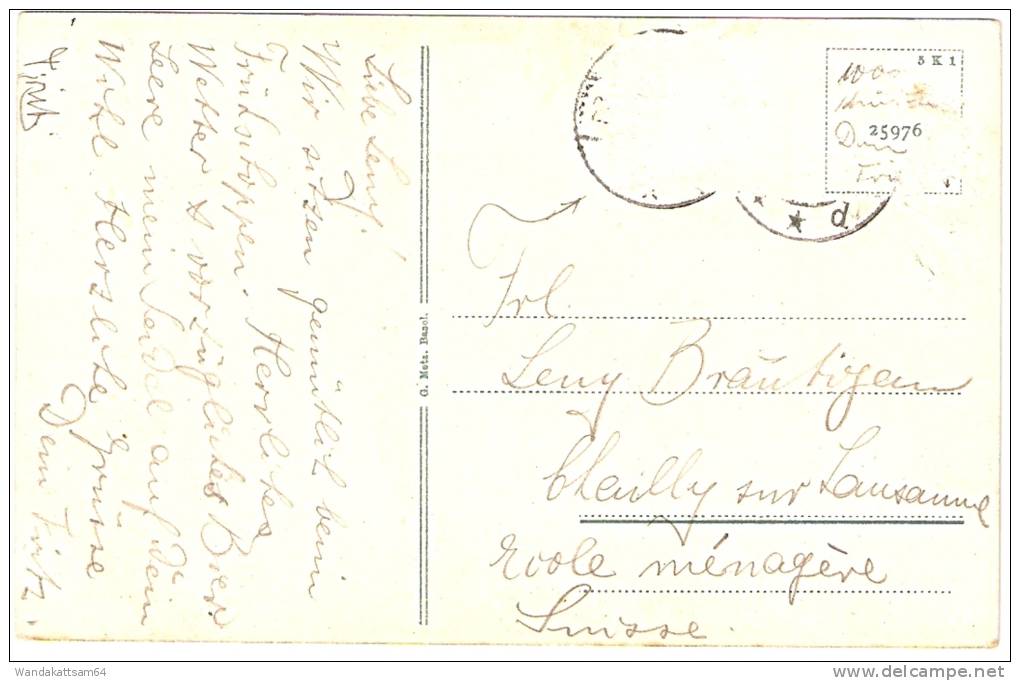 Liebe Leny!
Wir sitzen gemütlich beim
Frühschoppen. Herrliches
Wetter & vorzügliches Bier.
Leere mein Seidel auf Dein
Wohl. Herzliche Grüsse
Dein Fritz.
G. Metz, Basel.
5 K 1
25976
Dein
d
Frl.
Leny Bräutigam
Chailly sur Lausanne
Ecole ménagère
Suisse.
Wandakattsam64
delcampe.net